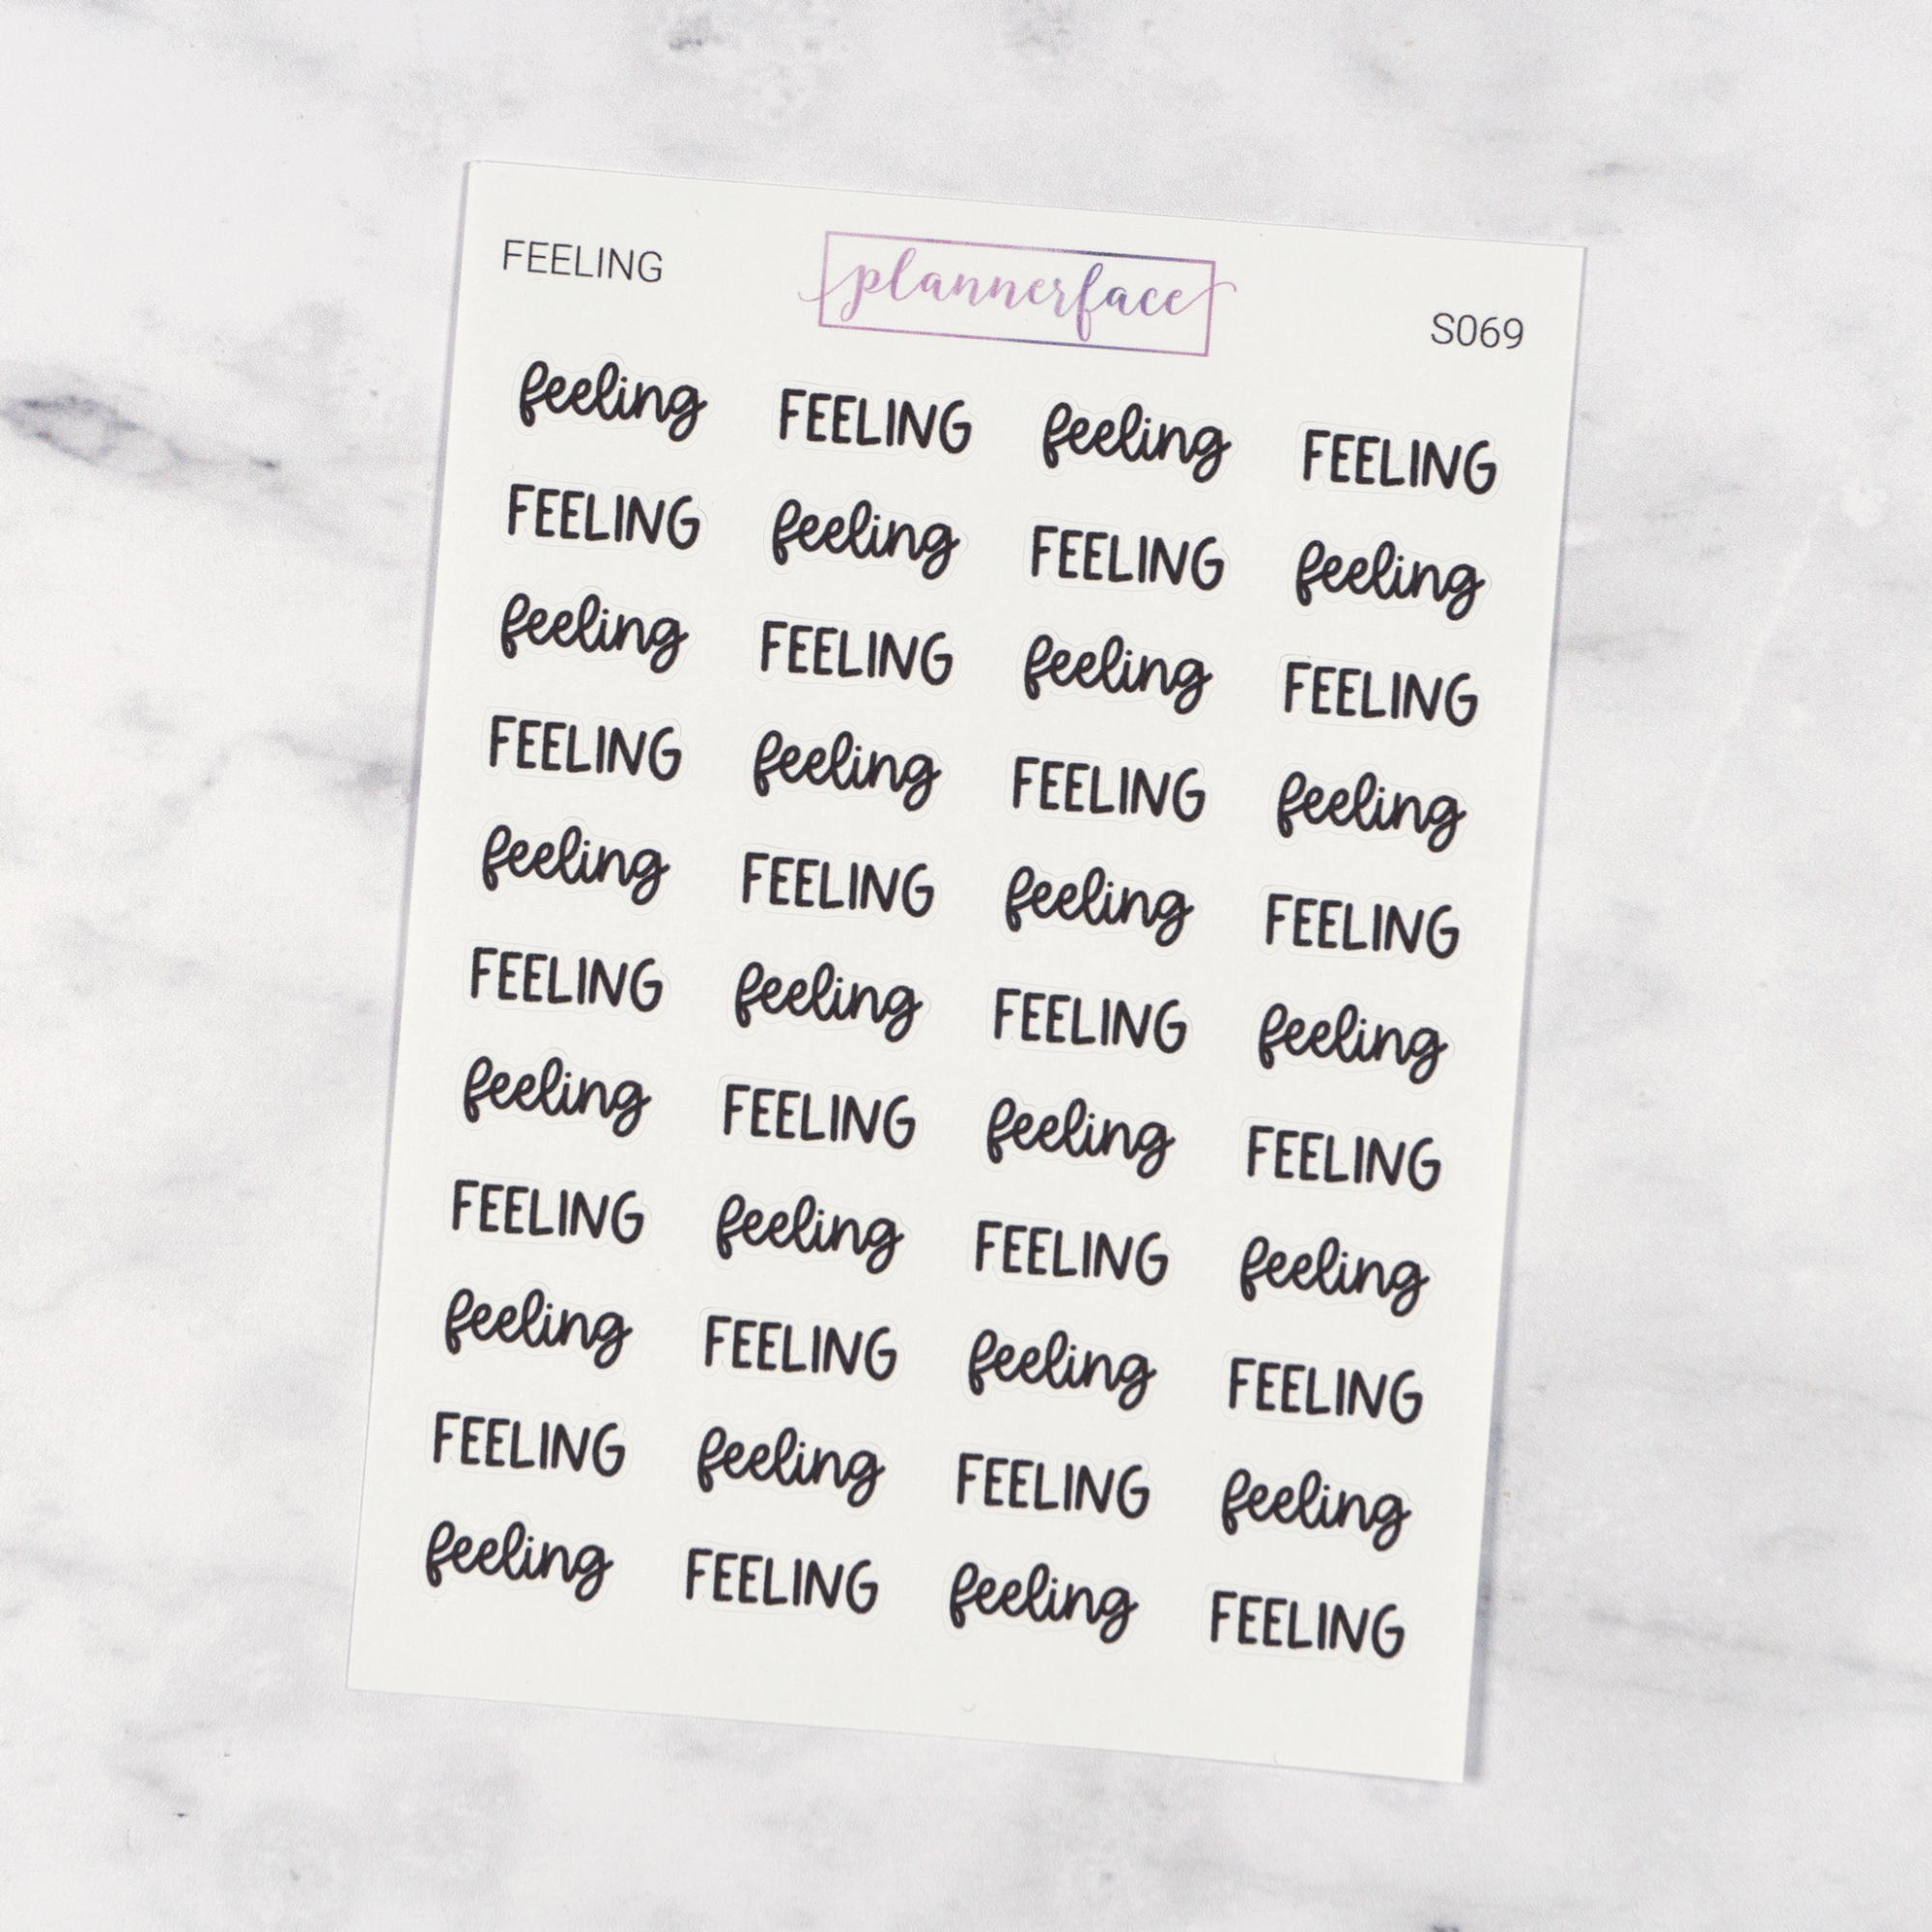 FEELING plannerface S069
feeling FEELING feeling FEELING
FEELING feeling FEELING feeling
feeling FEELING feeling FEELING
FEELING feeling FEELING feeling
feeling FEELING feeling FEELING
FEELING feeling FEELING feeling
feeling FEELING feeling FEELING
FEELING feeling FEELING feeling
feeling FEELING feeling FEELING
FEELING feeling FEELING feeling
feeling FEELING feeling FEELING